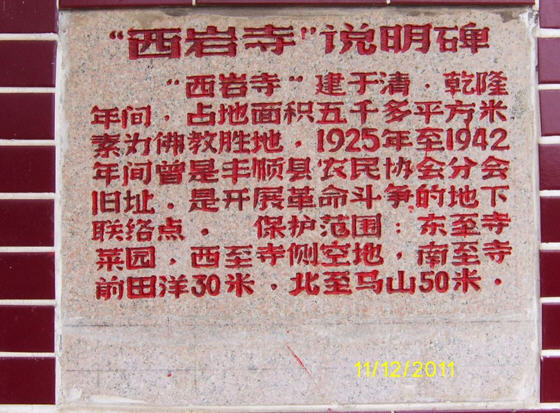 “西岩寺”说明碑
“西岩寺“建于清．乾隆
年间．占地面积五千多平方米
素为佛教胜地．1925年至1942
年间曾是丰顺县农民协会分会
旧址．是开展革命斗争的地下
联络点． 保护范围：东至寺
菜园，西至寺侧空地，南至寺
前田洋30米．北至马山50米．
11/12/2011